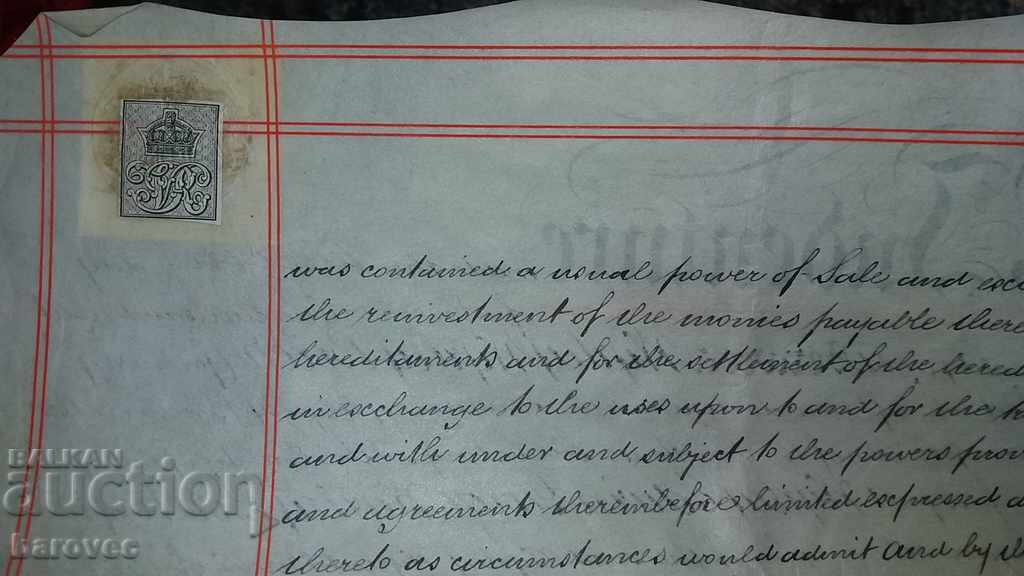 VR
Indenture
was contained a usual power of Sale and
the reinvestment of the monies payable
hereditaments and for the settlement of the
in exchange to the uses upon to and for the
and with under and subject to the powers
and agreements thereinbefore limited expressed
thereto as circumstances would admit and by
BALKAN
auction
barovec